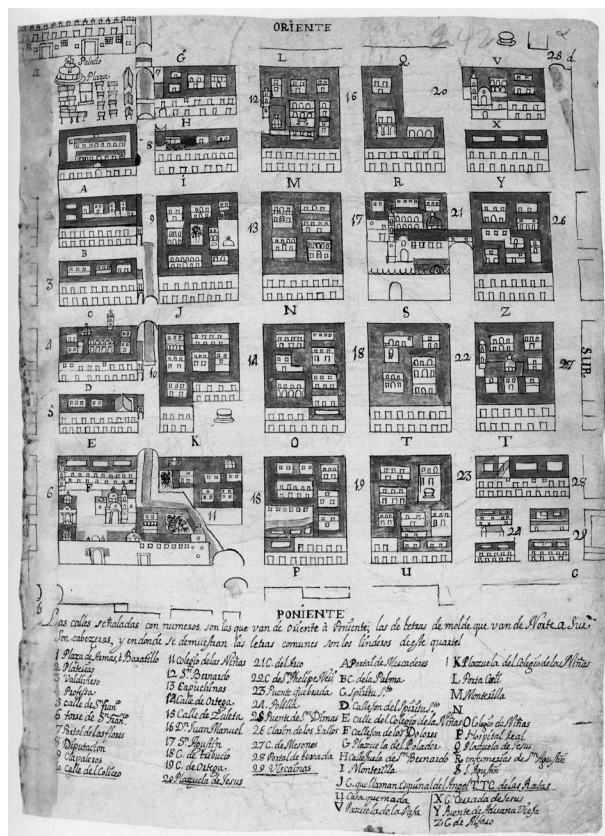 ORIENTE
Palacio
Plaza
G
L
Q
V
28 d.
a
7
12
16
20
H
X
1
8
A
I
M
R
Y
2
9
13
17
21
26
B
3
C
J
N
S
Z
SUR.
4
D
10
14
18
22
27
5
E
K
O
T
T
6
F
11
18
19
23
28
29
P
U
G
PONIENTE
Las calles señaladas con numeros, son las que van de oriente à Poniente; las de letras de molde que van de Norte a Sur
Son cabezeras, y en donde se demuestran las letras comunes son los linderos de este quartel
1 Plaza de Armas, ò Baratillo
2 Platerias
3
4 Profesa
5 calle de Sn. franco
6 torre de Sn. franco
7 Portal de las flores
8 Diputacion
9
10 calle del Coliseo
11 Colegio de las Niñas
12 Sn. Bernardo
13 Capuchinas
14 Calle de Ortega
15 Calle de Zuleta
16 Dn. Juan Manuel
17 Sn. Agustin
18 C. de tiburcio
19 C. de Ortega
20 Plazuela de Jesus
21 C. del Arco
22 C. de Sn. Phelipe Neri
23 Puente quebrada
24 Polilla
25 Puente de Sn. Dimas
26
27 C. de Mesones
28 Portal de texada
29 Viscainas
A Portal de Mercaderes
B C. de la Palma
C Spiritu Sto
D Callejon del Spiritu Sto
E calle del Colegio de la Niñas
F Callejon de los Dolores
G Plazuela del Bolador
H Callejuela de Sn. Bernardo
I Montexilla
J C. que llaman Esquina del Angel
T T C. de las Ratas
U Casa quemada
V
K Plazuela del Colegio de las Niñas
L Porta Celi
M Montexilla
N
O Colegio de Niñas
P Hospital Real
Q Plazuela de Jesus
R enfermerias de Sn. Agustin
S S. Agustin
X C. Cerrada de Jesus
Y Puente de Aduana Vieja
Z C. de Alfaro